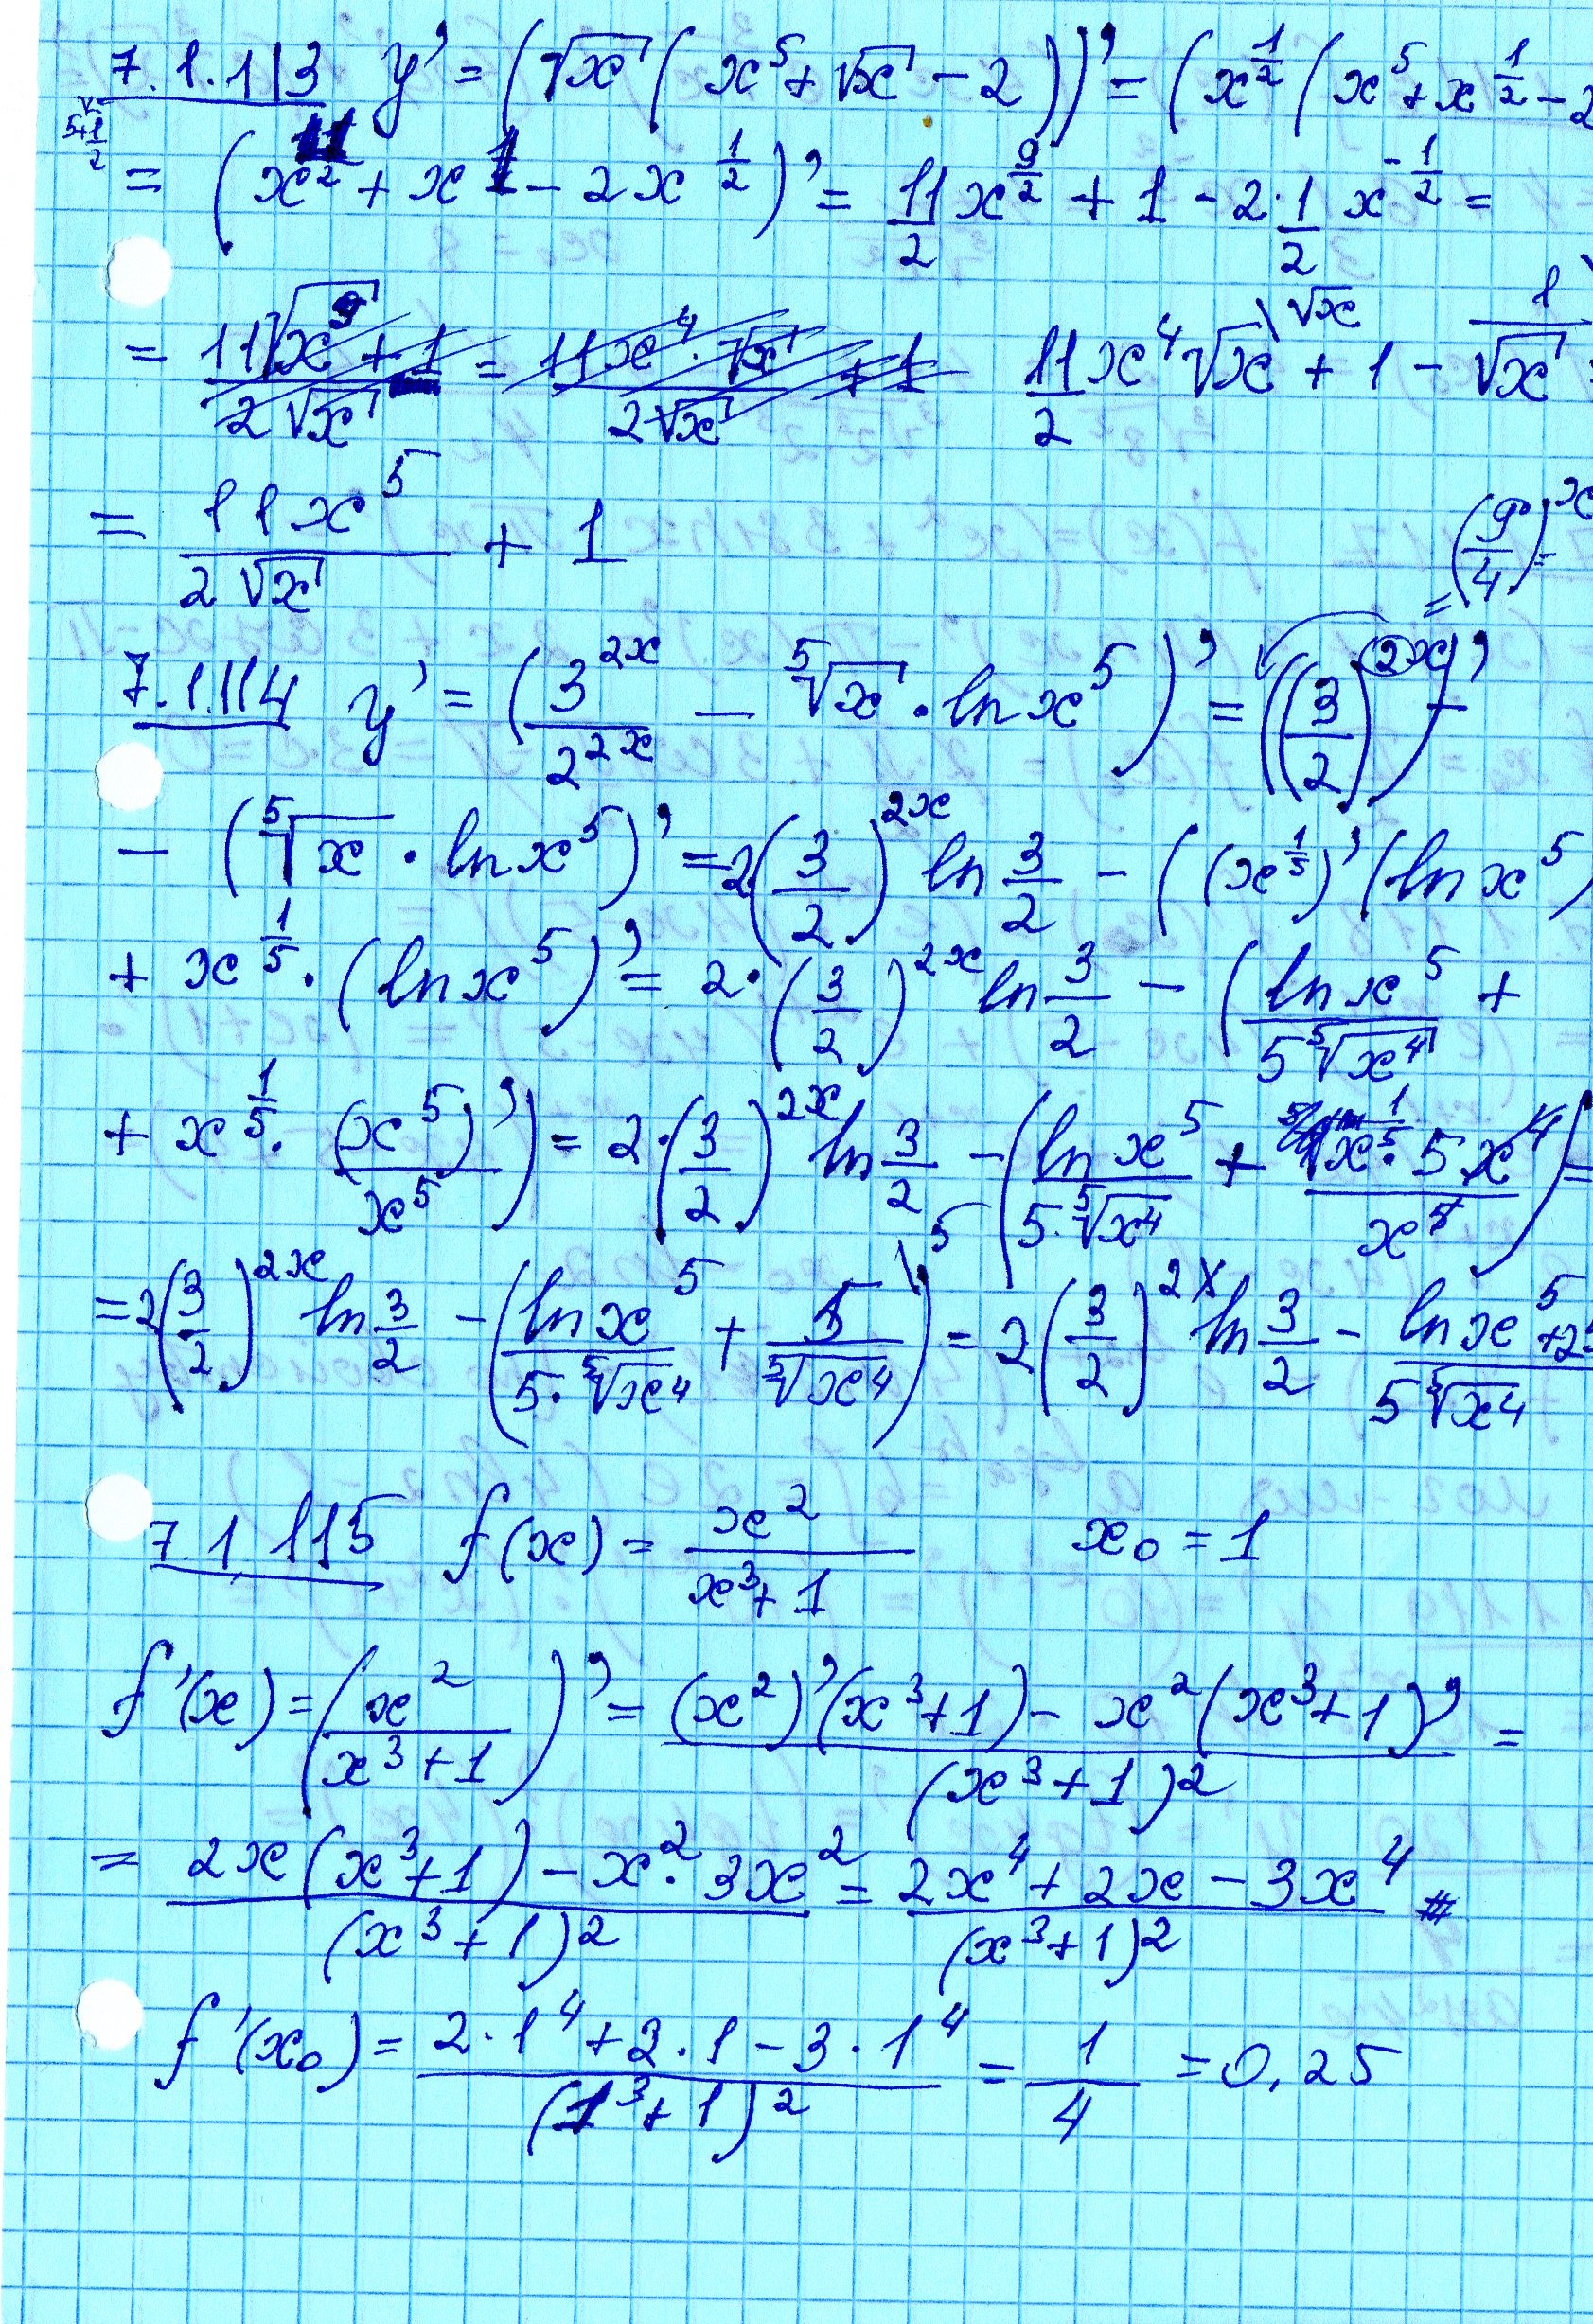 7.1.113 y' = (√x (x⁵ + √x − 2))' = (x^{1/2} (x⁵ + x^{1/2} − 2
5+1/2
= (x^{11/2} + x^1 − 2x^{1/2})' = 11/2 x^{9/2} + 1 − 2·1/2 x^{-1/2} =
= (11√x⁹ + 1)/(2√x) = (11x⁴·√x)/(2√x) + 1 11/2 x⁴√x \√x + 1 − 1/√x
= 11x⁵/(2√x) + 1
= (9/4)^x =
7.1.114 y' = (3^{2x}/2^{2x} − ⁵√x · ln x⁵)' = ((3/2)^{2x})' −
− (⁵√x · ln x⁵)' = 2(3/2)^{2x} ln 3/2 − ((x^{1/5})' (ln x⁵)
+ x^{1/5} · (ln x⁵)' = 2·(3/2)^{2x} ln 3/2 − (ln x⁵/(5 ⁵√x⁴) +
+ x^{1/5} · (x⁵)'/x⁵) = 2·(3/2)^{2x} ln 3/2 − (ln x⁵/(5·⁵√x⁴) + (x^{1/5}·5x⁴)/x⁵) =
= 2(3/2)^{2x} ln 3/2 − (ln x⁵/(5·⁵√x⁴) + 5/⁵√x⁴ \5) = 2(3/2)^{2x} ln 3/2 − (ln x⁵ + 25)/(5 ⁵√x⁴)
7.1.115 f(x) = x²/(x³+1) x₀ = 1
f'(x) = (x²/(x³+1))' = ((x²)'(x³+1) − x²(x³+1)')/(x³+1)² =
= (2x(x³+1) − x²·3x²)/(x³+1)² = (2x⁴ + 2x − 3x⁴)/(x³+1)²
f'(x₀) = (2·1⁴ + 2·1 − 3·1⁴)/(1³+1)² = 1/4 = 0,25